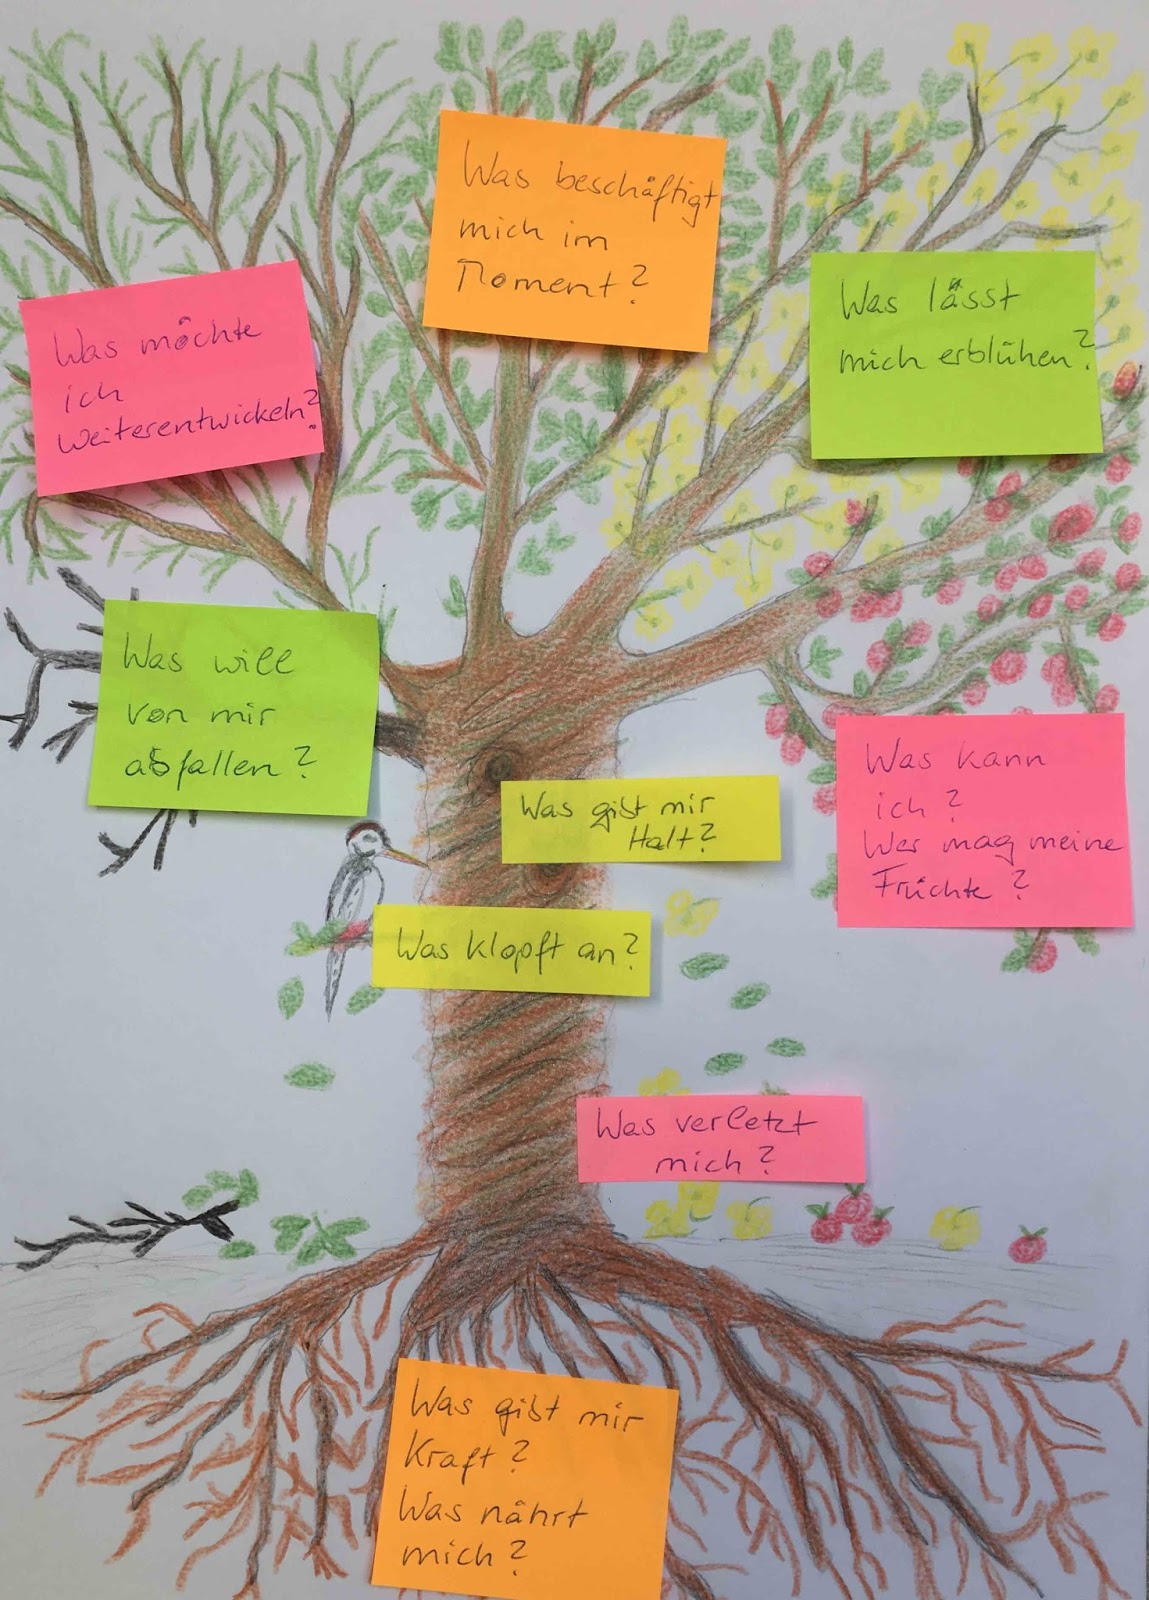 Was beschäftigt
mich im
Moment?
Was möchte
ich
weiterentwickeln?
Was lässt
mich erblühen?
Was will
von mir
abfallen?
Was kann
ich?
Wer mag meine
Früchte?
Was gibt mir
Halt?
Was klopft an?
Was verletzt
mich?
Was gibt mir
Kraft?
Was nährt
mich?